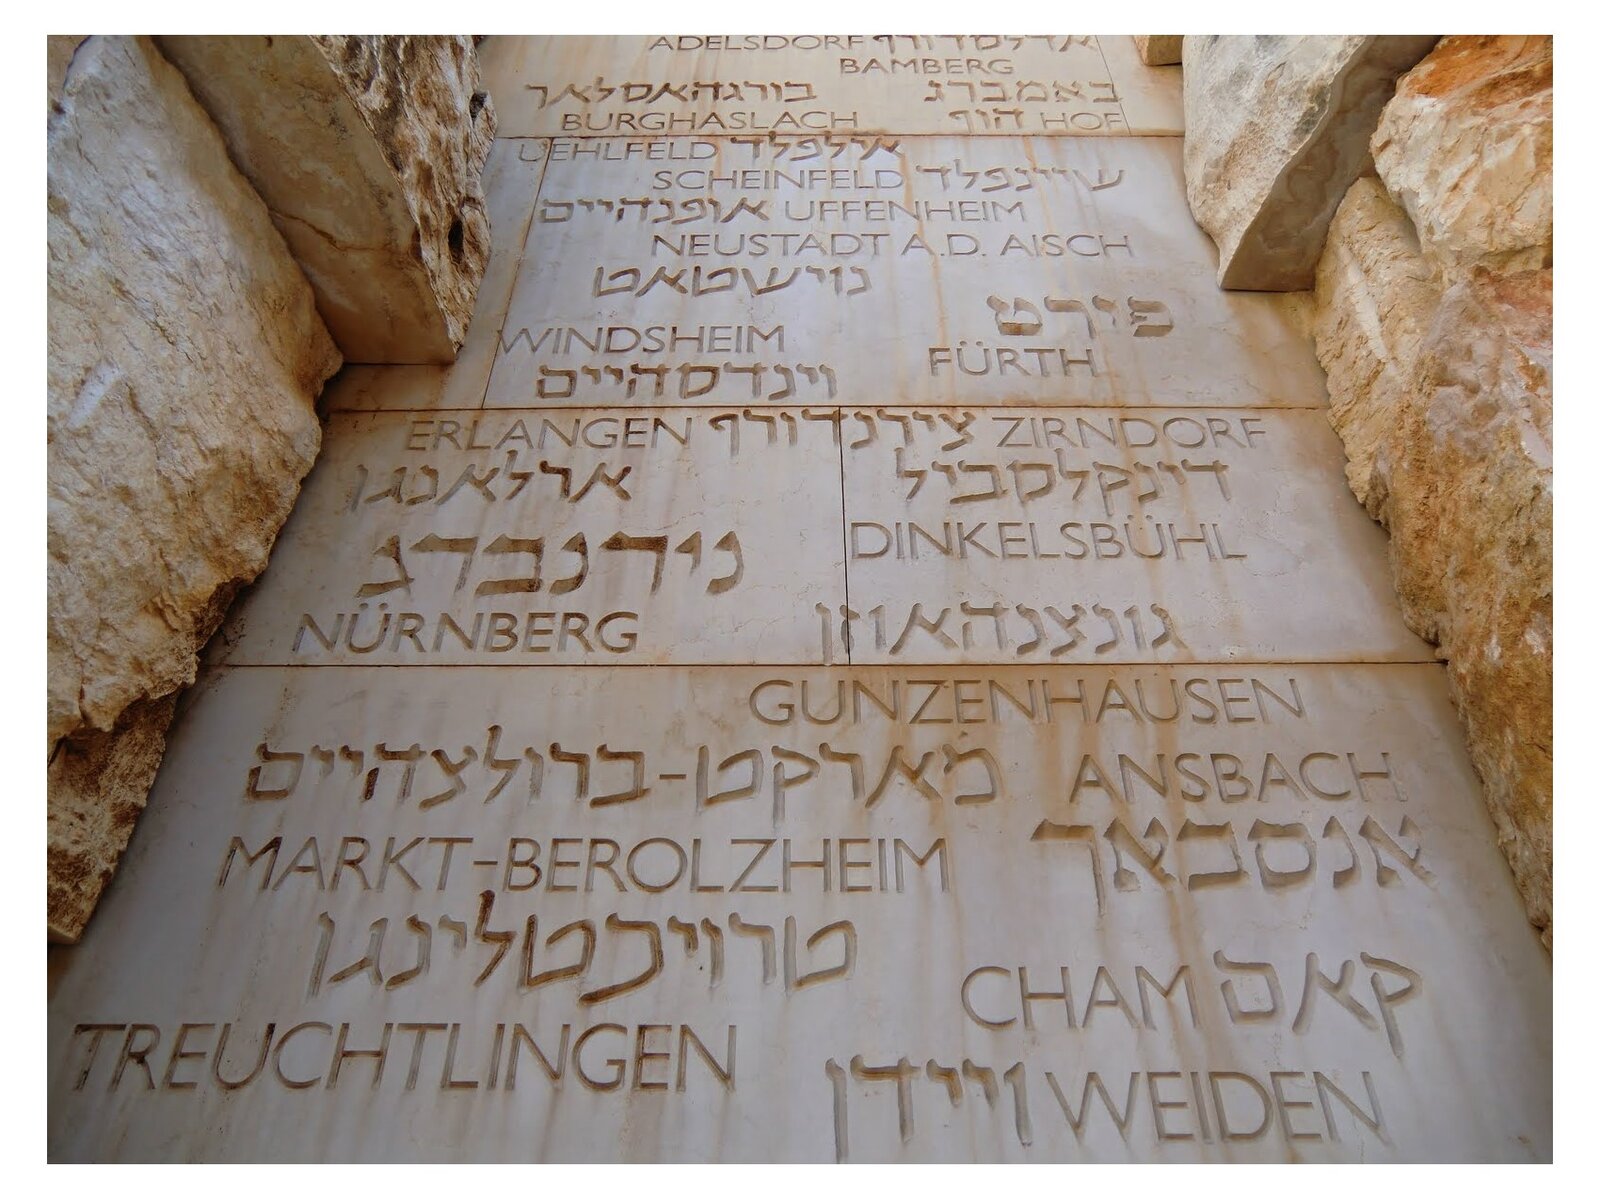 ADELSDORF אדלסדורף
BAMBERG
בורגהאסלאך באמברג
BURGHASLACH הוף HOF
UEHLFELD אילפלד
SCHEINFELD שיינפלד
אופנהיים UFFENHEIM
NEUSTADT A.D. AISCH
נוישטאט
פירט
WINDSHEIM FÜRTH
וינדסהיים
ERLANGEN צירנדורף ZIRNDORF
ארלאנגן דינקלסביל
DINKELSBÜHL
נירנברג
NÜRNBERG גונצנהאוזן
GUNZENHAUSEN
מארקט-ברולצהיים ANSBACH
MARKT-BEROLZHEIM אנסבאך
טרויכטלינגן
CHAM קאם
TREUCHTLINGEN
ויידן WEIDEN